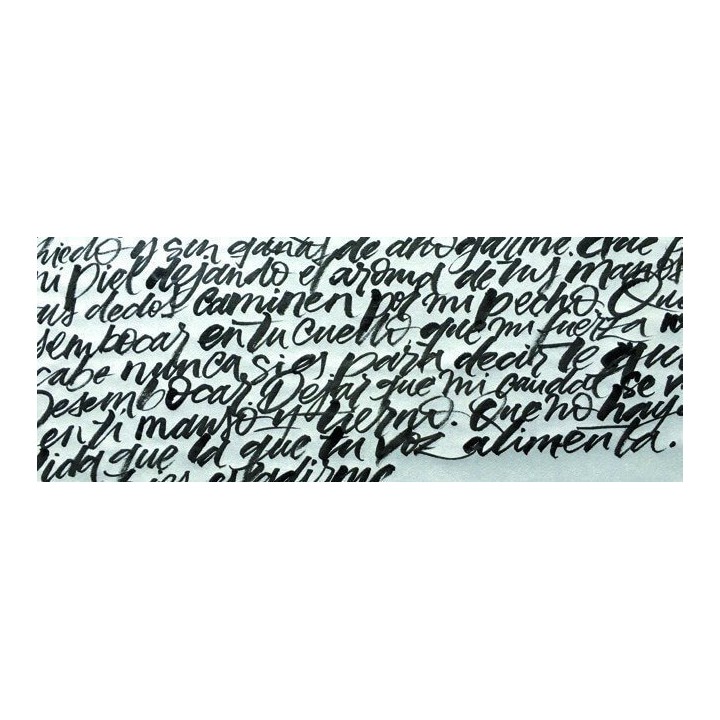 miedo y sin ganas de ahogarme. Que
mi piel dejando el aroma de tus manos
tus dedos caminen por mi pecho. Que
desembocar en tu cuello, que mi fuerza
cabe nunca si es para decirte que
Desembocar. Dejar que mi caudal se
en ti manso y tierno. Que no haya
vida que la que tu voz alimenta.
es evadirme